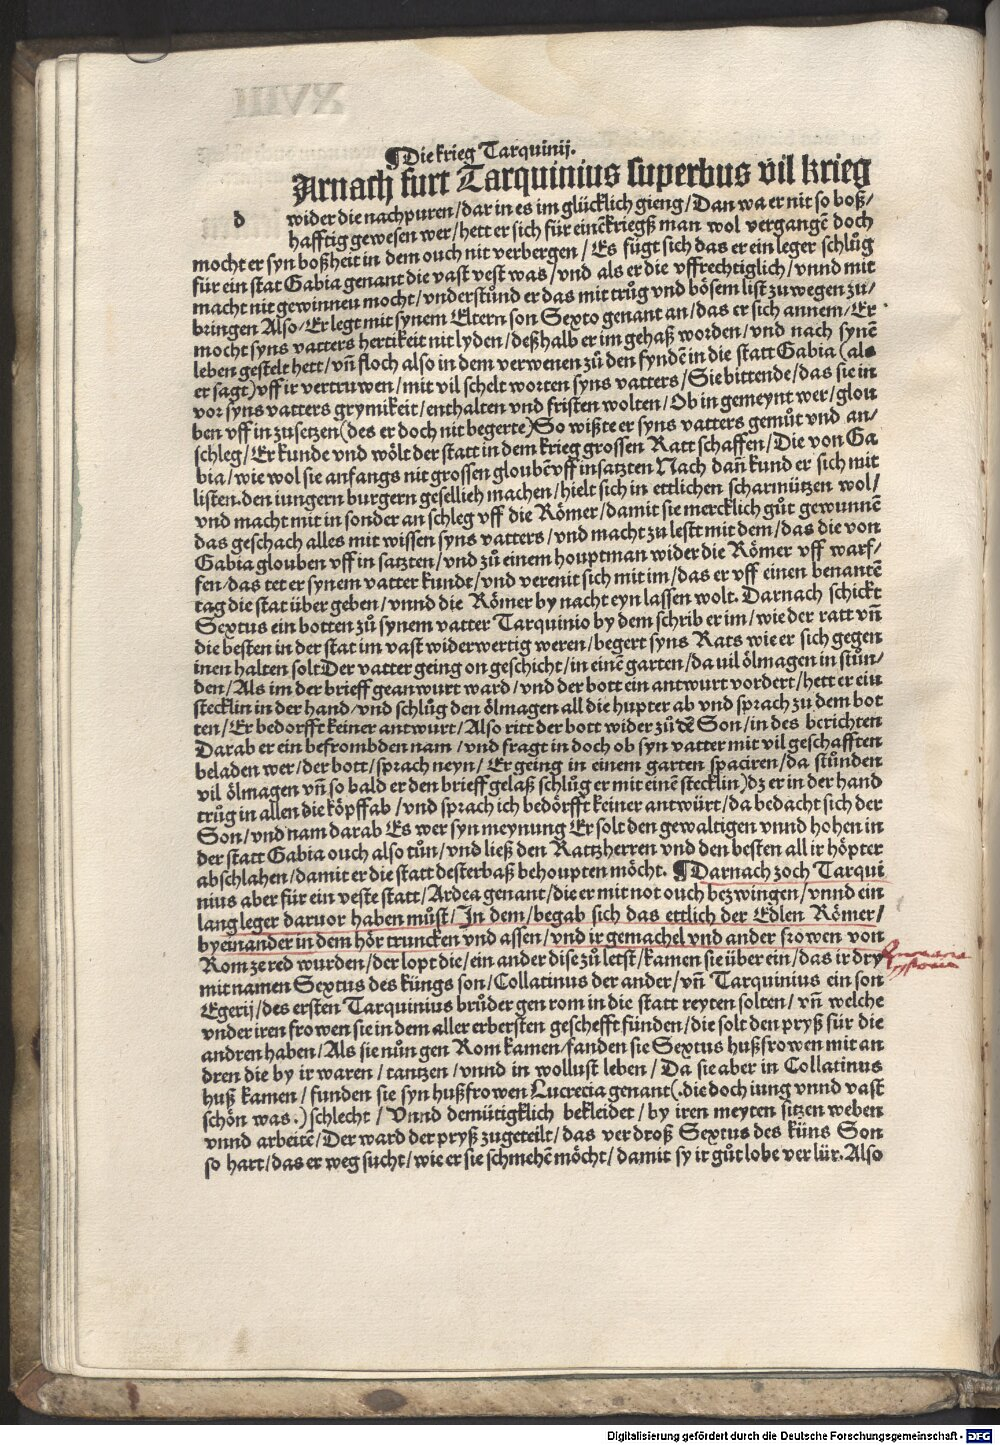 ¶Die krieg Tarquinij.
d Arnach furt Tarquinius superbus vil krieg
wider die nachpuren/dar in es im glücklich gieng/Dan wa er nit so boß/
hafftig gewesen wer/hett er sich für einē kriegß man wol vergangē doch
mocht er syn boßheit in dem ouch nit verbergen/Es fügt sich das er ein leger schlůg
für ein stat Gabia genant die vast vest was/vnd als er die vffrechtiglich/vnnd mit
macht nit gewinnen mocht/vnderstůnd er das mit trůg vnd bösem list zu wegen zu/
bringen Also/Er legt mit synem Eltern son Sexto genant an/das er sich annem/Er
mocht syns vatters hertikeit nit lyden/deßhalb er im gehaß worden/vnd nach synē
leben gestelt hett/vñ floch also in dem verwenen zů den fyndē in die statt Gabia (als
er sagt)vff ir vertruwen/mit vil schelt worten syns vatters/Sie bittende/das sie in
vor syns vatters grymikeit/enthalten vnd fristen wolten/Ob in gemeynt wer/glou
ben vff in zusetzen(des er doch nit begerte)So wißte er syns vatters gemůt vnd an/
schleg/Er kunde vnd wölt der statt in dem krieg grossen Ratt schaffen/Die von Ga
bia/wie wol sie anfangs nit grossen gloubē vff in satzten Nach dañ kund er sich mit
listen.den iungern burgern gesellieh machen/hielt sich in ettlichen scharmützen wol/
vnd macht mit in sonder an schleg vff die Römer/damit sie mercklich gůt gewunnē
das geschach alles mit wissen syns vatters/vnd macht zu lestt mit dem/das die von
Gabia glouben vff in satzten/vnd zů einem houptman wider die Römer vff warf/
fen/das tet er synem vatter kundt/vnd verenit sich mit im/das er vff einen benantē
tag die stat über geben/vnnd die Römer by nacht eyn lassen wolt. Darnach schickt
Sextus ein botten zů synem vatter Tarquinio by dem schrib er im/wie der ratt vñ
die besten in der stat im vast widerwertig weren/begert syns Rats wie er sich gegen
inen halten solt Der vatter geing on geschicht/in einē garten/da vil ölmagen in stůn/
den/Als im der brieff geanwurt ward/vnd der bott ein antwurt vordert/hett er ein
stecklin in der hand/vnd schlůg den ölmagen all die hupter ab vnd sprach zu dem bot
ten/Er bedorfft keiner antwurt/Also ritt der bott wider zů dē Son/in des berichten
Darab er ein befrombden nam/vnd fragt in doch ob syn vatter mit vil geschafften
beladen wer/der bott/sprach neyn/Er geing in einem garten spaciren/da stůnden
vil ölmagen vñ so bald er den brieff gelaß schlůg er mit einē stecklin)dz er in der hand
trůg in allen die köpff ab/vnd sprach ich bedörfft keiner antwürt/da bedacht sich der
Son/vnd nam darab Es wer syn meynung Er solt den gewaltigen vnnd hohen in
der statt Gabia ouch also tůn/vnd ließ den Rattzherren vnd den besten all ir höpter
abschlahen/damit er die statt desterbaß behoupten möcht. ¶Darnach zoch Tarqui
nius aber für ein veste statt/Ardea genant/die er mit not ouch bezwingen/vnnd ein
lang leger daruor haben můst/In dem/begab sich das ettlich der Edlen Römer/
by einander in dem hör truncken vnd assen/vnd ir gemachel vnd ander frowen von
Rom ze red wurden/der lopt die/ein ander dise zů letst/kamen sie über ein/das ir dry
mit namen Sextus des küngs son/Collatinus der ander/vñ Tarquinius ein son
Egerij/des ersten Tarquinius brůder gen rom in die statt reyten solten/vñ welche
vnder iren frowen sie in dem aller erbersten geschefft fünden/die solt den pryß für die
andren haben/Als sie nůn gen Rom kamen/fanden sie Sextus hußfrowen mit an
dren die by ir waren/tantzen/vnnd in wollust leben/Da sie aber in Collatinus
huß kamen/funden sie syn hußfrowen Lucrecia genant(.die doch iung vnnd vast
schön was:)schlecht/Vnnd demütigklich bekleidet/by iren meyten sitzen weben
vnnd arbeitē/Der ward der pryß zugeteilt/das verdroß Sextus des küns Son
so hart/das er weg sucht/wie er sie schmehē möcht/damit sy ir gůt lobe verlür.Also
Digitalisierung gefördert durch die Deutsche Forschungsgemeinschaft - DFG